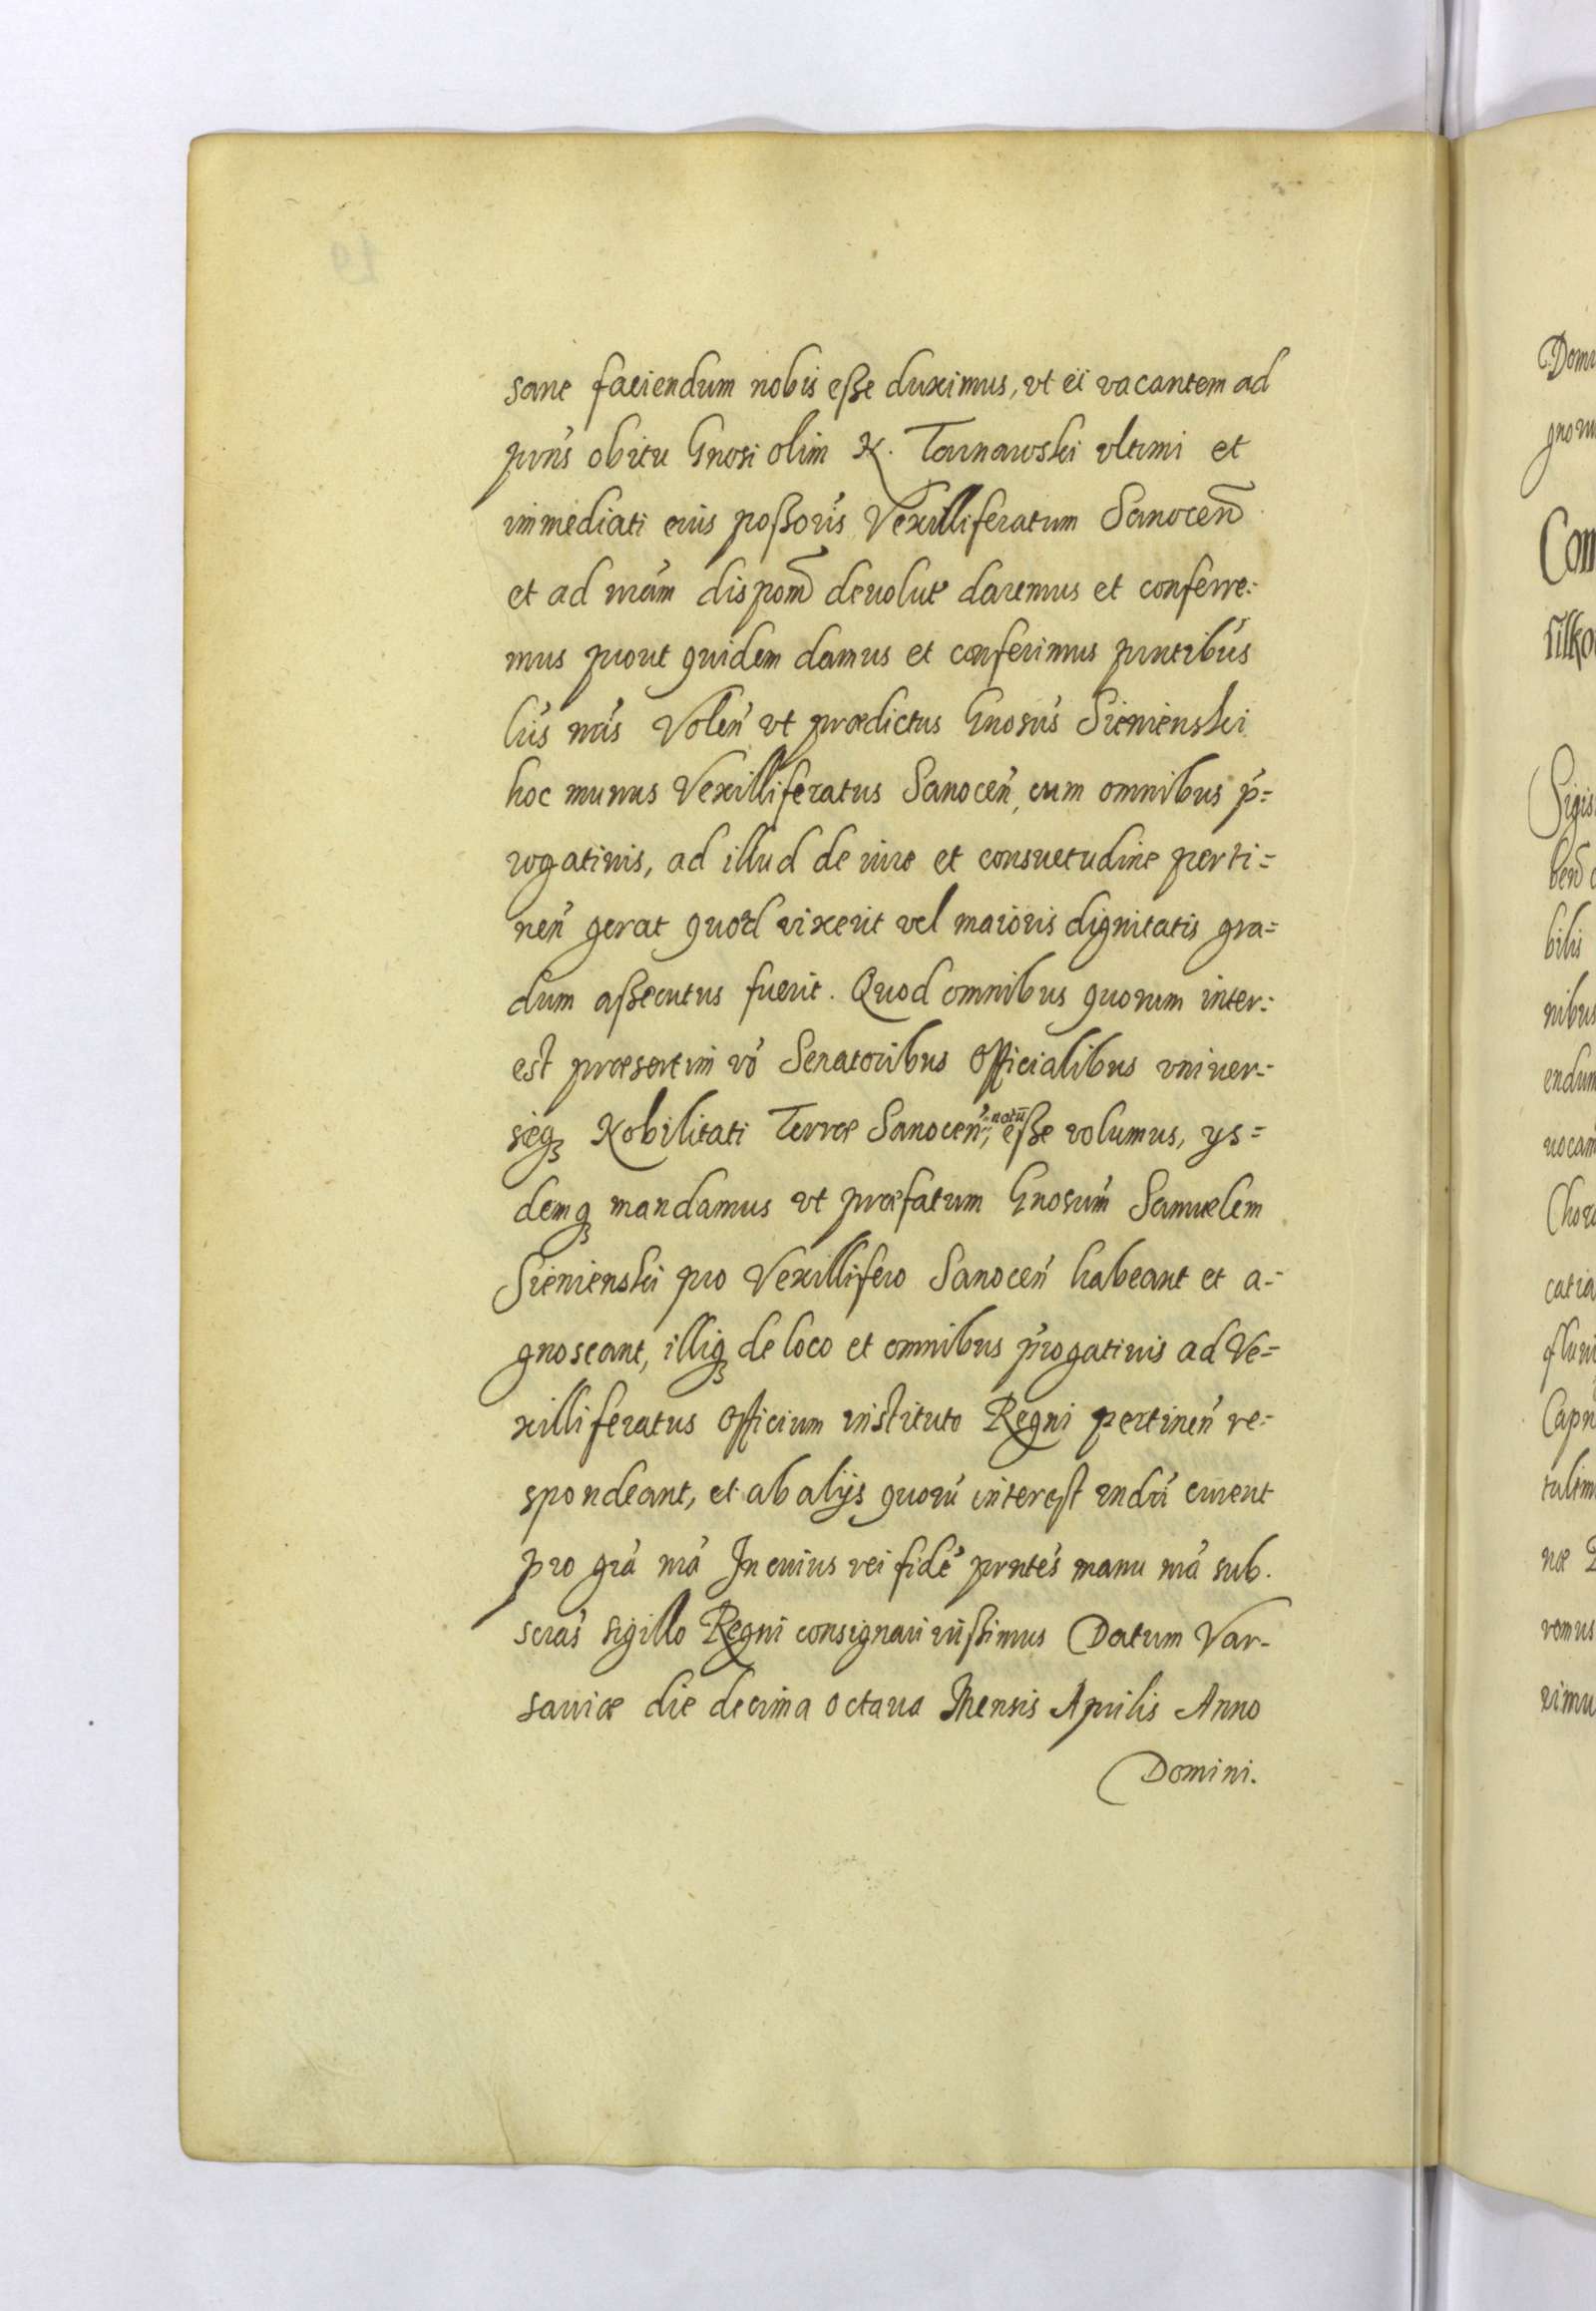 sane faciendum nobis eſſe duximus, vt ei vacantem ad
prńs obitu Gnosi olim N. Tarnawski vltimi et
immediati eius poßoris Vexilliferatum Sanoceñ
et ad nrám disposm̃ deuolut daremus et conferre-
mus prout quidem damus et conferimus prntibús
lrís nrís Voleń vt prædictus Gnosús Sienienski
hoc munus Vexilliferatus Sanoceń, cum omnibus ṕ=
rogatiuis, ad illud de iure et consuetudine perti=
neń gerat quoad vixerit vel maioris dignitatis gra=
dum aßecutus fuerit. Quod omnibus quorum inter-
est præsertim vó Senatoribus Officialibus vniuer-
sæq Nobilitati Terræ Sanoceń, notū eße volumus, ys=
demq mandamus vt præfatum Gnosúm Samuelem
Sienienski pro Vexillifero Sanoceń habeant et a-
gnoscant, illiq de loco et omnibus ṕrogatiuis ad Ve=
xilliferatus Officium instituto Regni pertineń re-
spondeant, et ab alijs quorū interest rndrí curent
pro grá nrá In cuius rei fidé prntés manu nrá sub.
scrás sigillo Regni consignari iußimus Datum Var-
sauiæ die decima octaua Mensis Aprilis Anno
Domini.
19
Domi
gnoru
Com
silko
Sigis
beñ
bilis
nibus
endum
uocam
Chora
catia
fluui
Capn
talim
næ
remus
rimu